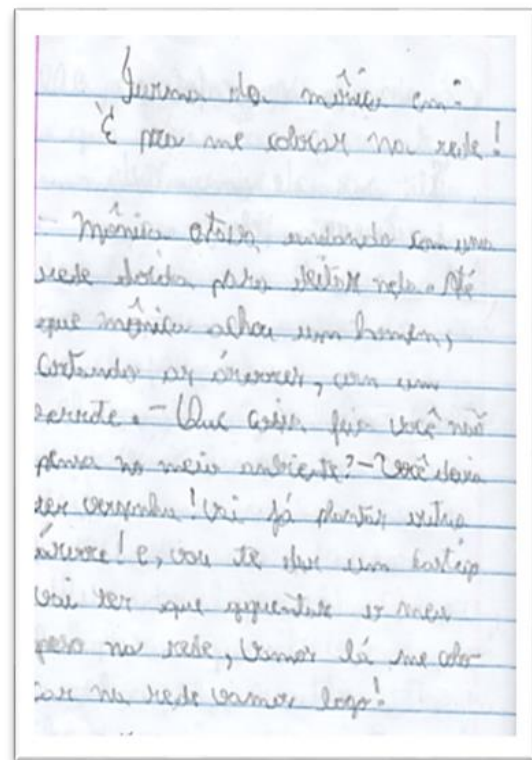 Turma da mônica em:
É pra me colocar na rede!
- Mônica otava andando com uma
rede doida para deitar nela. Até
que mônica achou um homem,
cortando as árvores, com um
serrote. - Que coisa feia você não
pensa no meio anbiente? - Você devia
ter vergonha! vai já plantar outra
árvore! e, vou te dar um castigo
vai ter que aguentar o meu
peso na rede, Vamos lá me colo-
car na rede vamos logo!